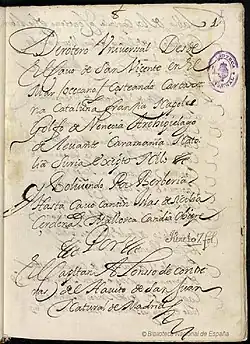 Derotero Universal Desde
El Cavo de San Vicente en El
Mar oceano, Costeando Cartage
na Cataluña Francia Napoles
Golfo de Venecia Archipielago
de Levante Caramania Nato
lia Suria Egipto Nilo
Y Bolviendo Por Berberia
Hasta Cavo Cantin Islas de Sicilia
Cerdeña Mallorca Candia
Por
El Capitan Alonso de contre
ras del Abito de San Juan
Natural de Madrid
© Biblioteca Nacional de España